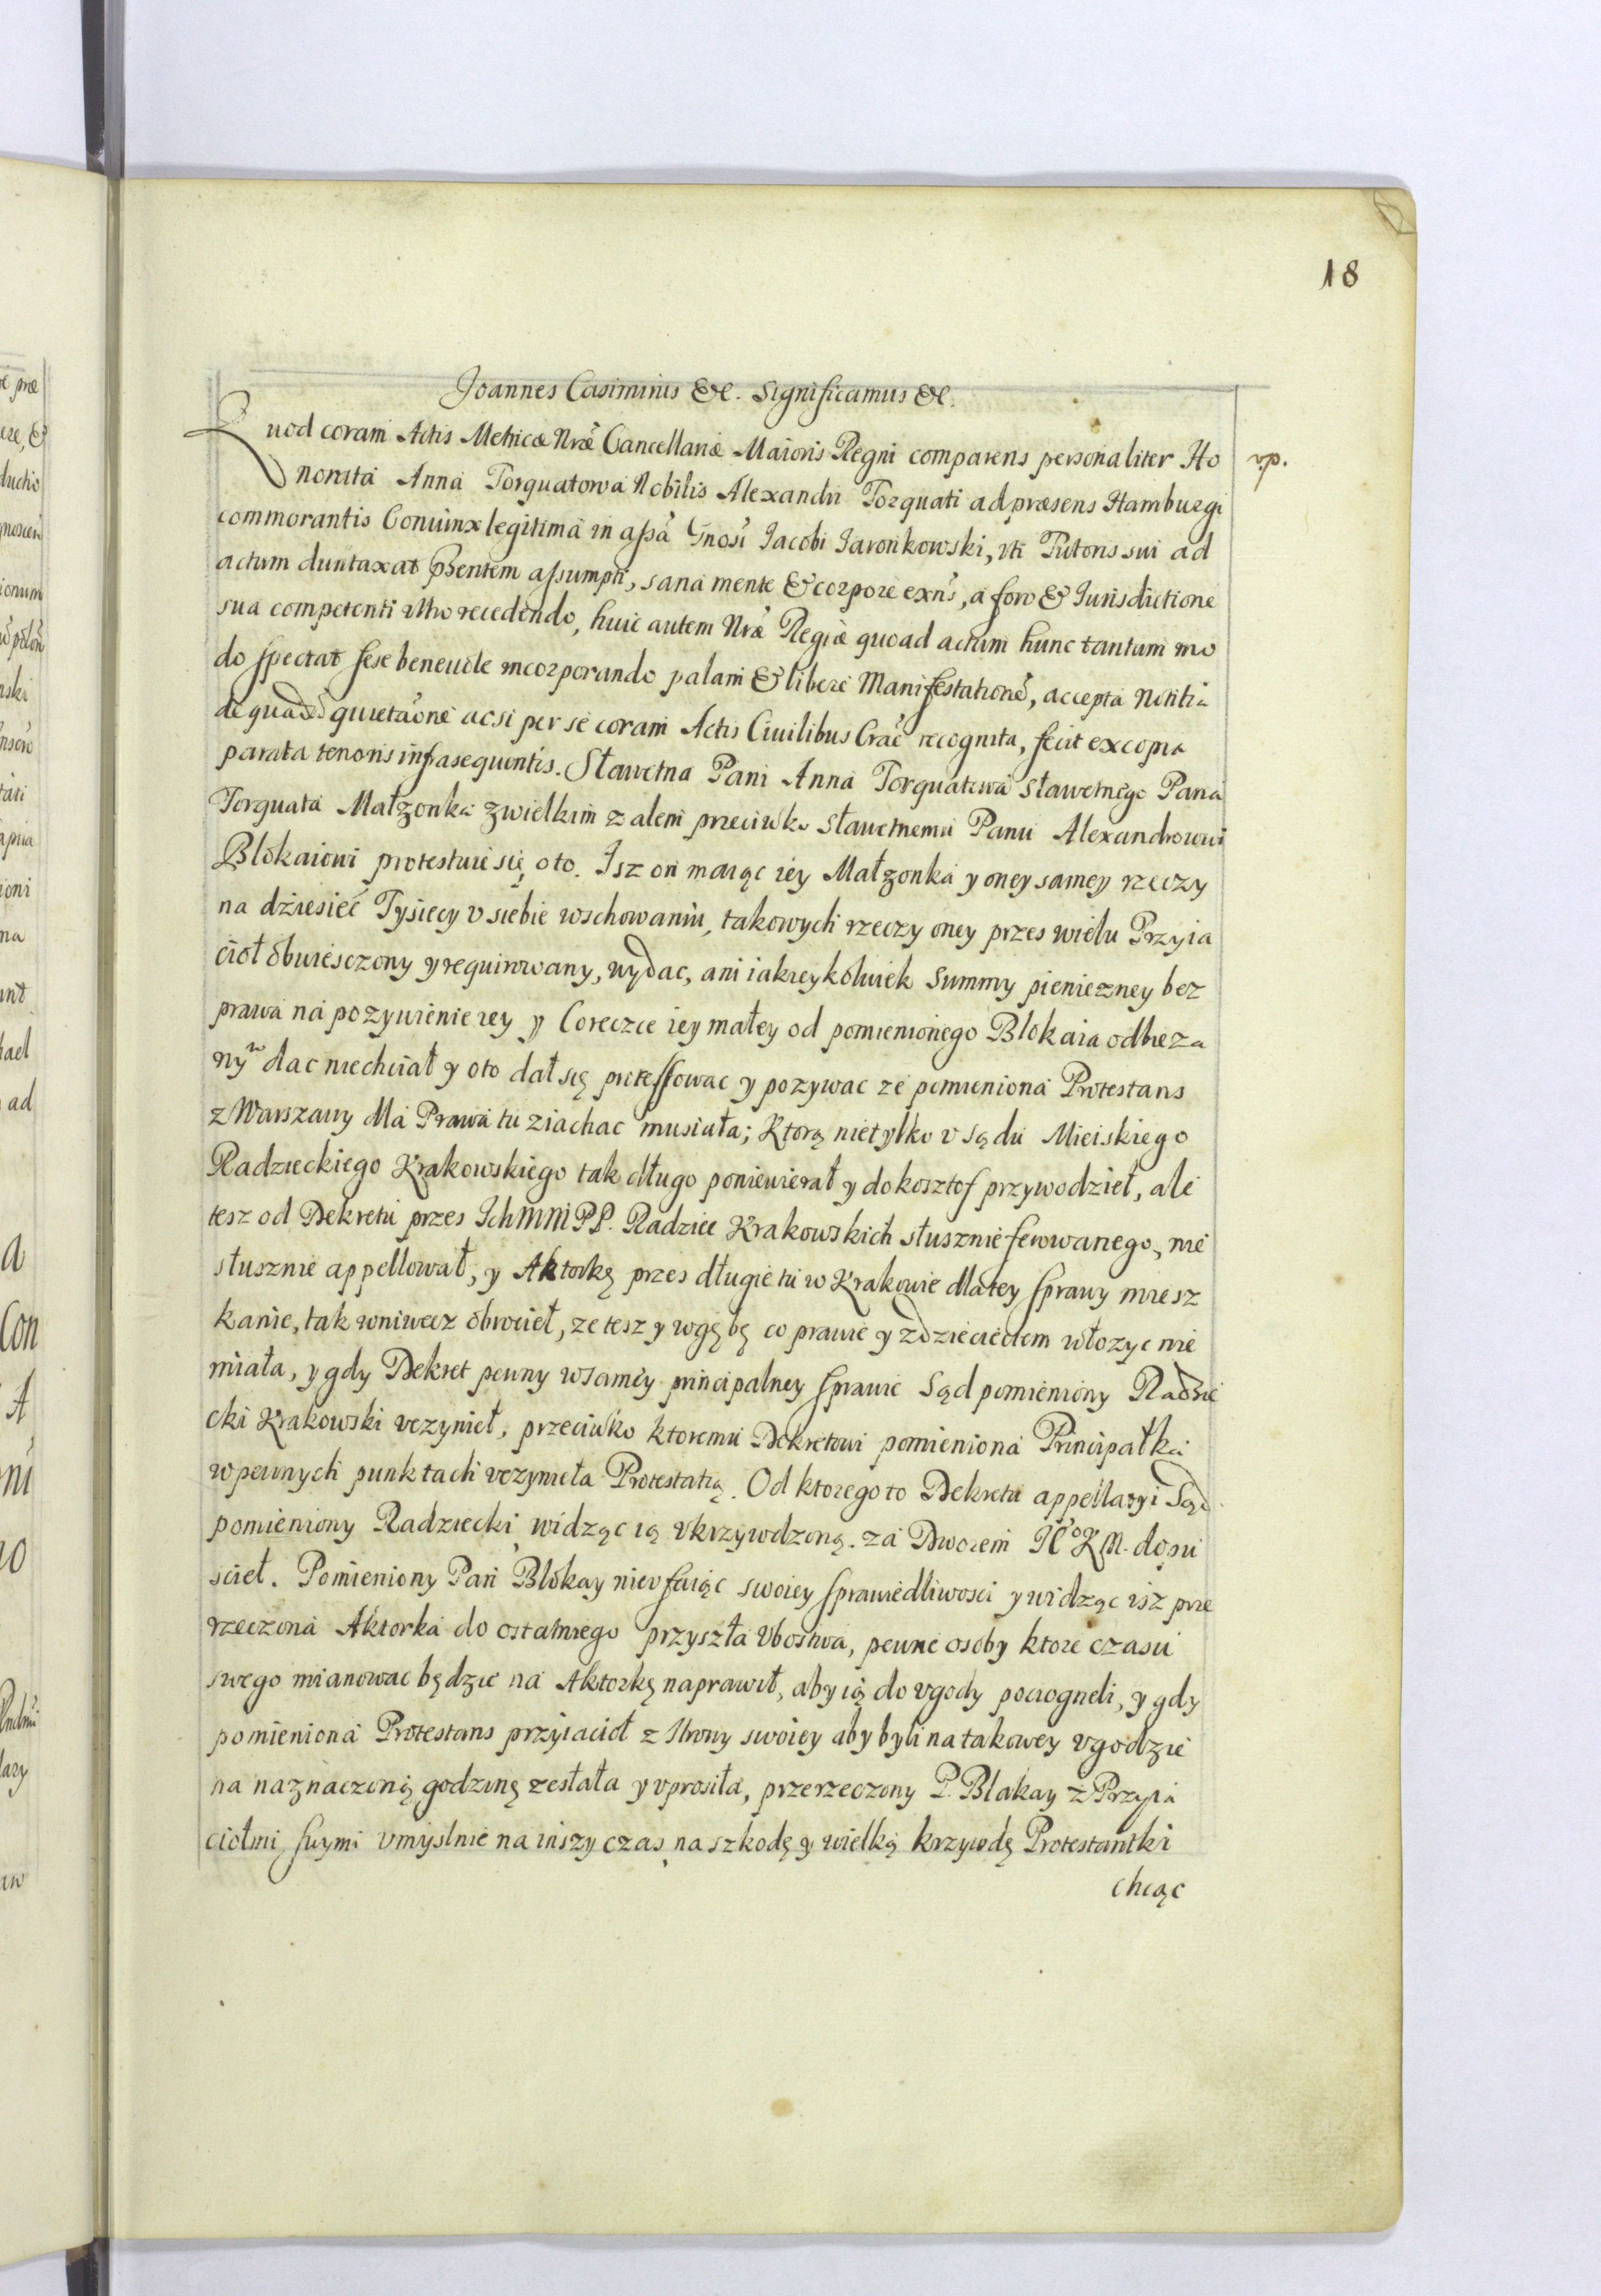 18
Joannes Casimirus &c. Significamus &c.
Quod coram Actis Metricæ Nræ Cancellariæ Maioris Regni comparens personaliter Ho
vp.
norata Anna Torquatowa Nobilis Alexandri Torquati ad præsens Hamburgi
commorantis Coniunx legitima in assa Gnosi Jacobi Jaronkowski, vti Tutoris sui ad
actum duntaxat pѕentem assumpti, sana mente & corpore exns, a foro & Iurisdictione
sua competenti recedendo, huic autem Nræ Regiæ quoad actum hunc tantum mo
do spectat sese beneuole incorporando palam & libere Manifestatione, accepta notitia
de quadã quietaone acsi per se coram Actis Ciuilibus Crac recognita, fecit ex copia
parata tenoris infrasequentis. Sławetna Pani Anna Torquatowa Sławetnego Pana
Torquata Małzonka zwielkim zalem przeciwko sławetnemu Panu Alexandrowi
Blokaiowi protestuie się oto. Isz on maiąc iey Małzonka y oney samey rzeczy
na dziesięć Tysięcy v siebie wschowaniu, takowych rzeczy oney przes wielu Przyia
cioł obwiesczony y requirowany, wydac, ani iakieykolwiek summy pienięzney bez
prawa na pozywienie iey y Coreczce iey małey od pomienionego Blokaia odbieza
nyᵐ dac niechciał y oto dał się protestowac y pozywac ze pomieniona Protestans
z Warszawy dla Prawa tu ziachac musiała; Ktorą nietylko v Sądu Mieiskiego
Radzieckiego Krakowskiego tak długo poniewierał y do kosztof przywodzieł, ale
tesz od Dekretu przes IchMM PP. Radziec Krakowskich słusznie ferowanego, nie
słusznie appellował, y Aktorkę przes długie tu w Krakowie dla tey sprawy miesz
kanie, tak wniwecz obrocieł, ze tesz y wgębę co prawie y zdziecięciem włozyc nie
miała, y gdy Dekret pewny wsamey principalney sprawie Sąd pomieniony Radzie
cki Krakowski vczynieł, przeciwko ktoremu Dekretowi pomieniona Principałka
w pewnych punktach vczynieła Protestatią. Od ktorego to Dekretu appellacyi Sąd
pomieniony Radziecki widząc ią vkrzywdzoną. za Dworem K M. dopu
scieł. Pomieniony Pan Blokay nieufaiąc swoiey sprawiedliwosci y widząc isz prze
rzeczona Aktorka do ostatniego przyszła Vbostwa, pewne osoby ktore czasu
swego mianowac będzie na Aktorkę naprawił, aby ią do vgody pociogneli, y gdy
pomieniona Protestans przyiacioł z strony swoiey aby byli na takowey vgodzie
na naznaczoną godzinę zesłała y vprosiła, przerzeczony P. Blakay z Przyia
ciołmi swymi vmyslnie na inszy czas na szkodę y wielką krzywdę Protestantki
chcąc